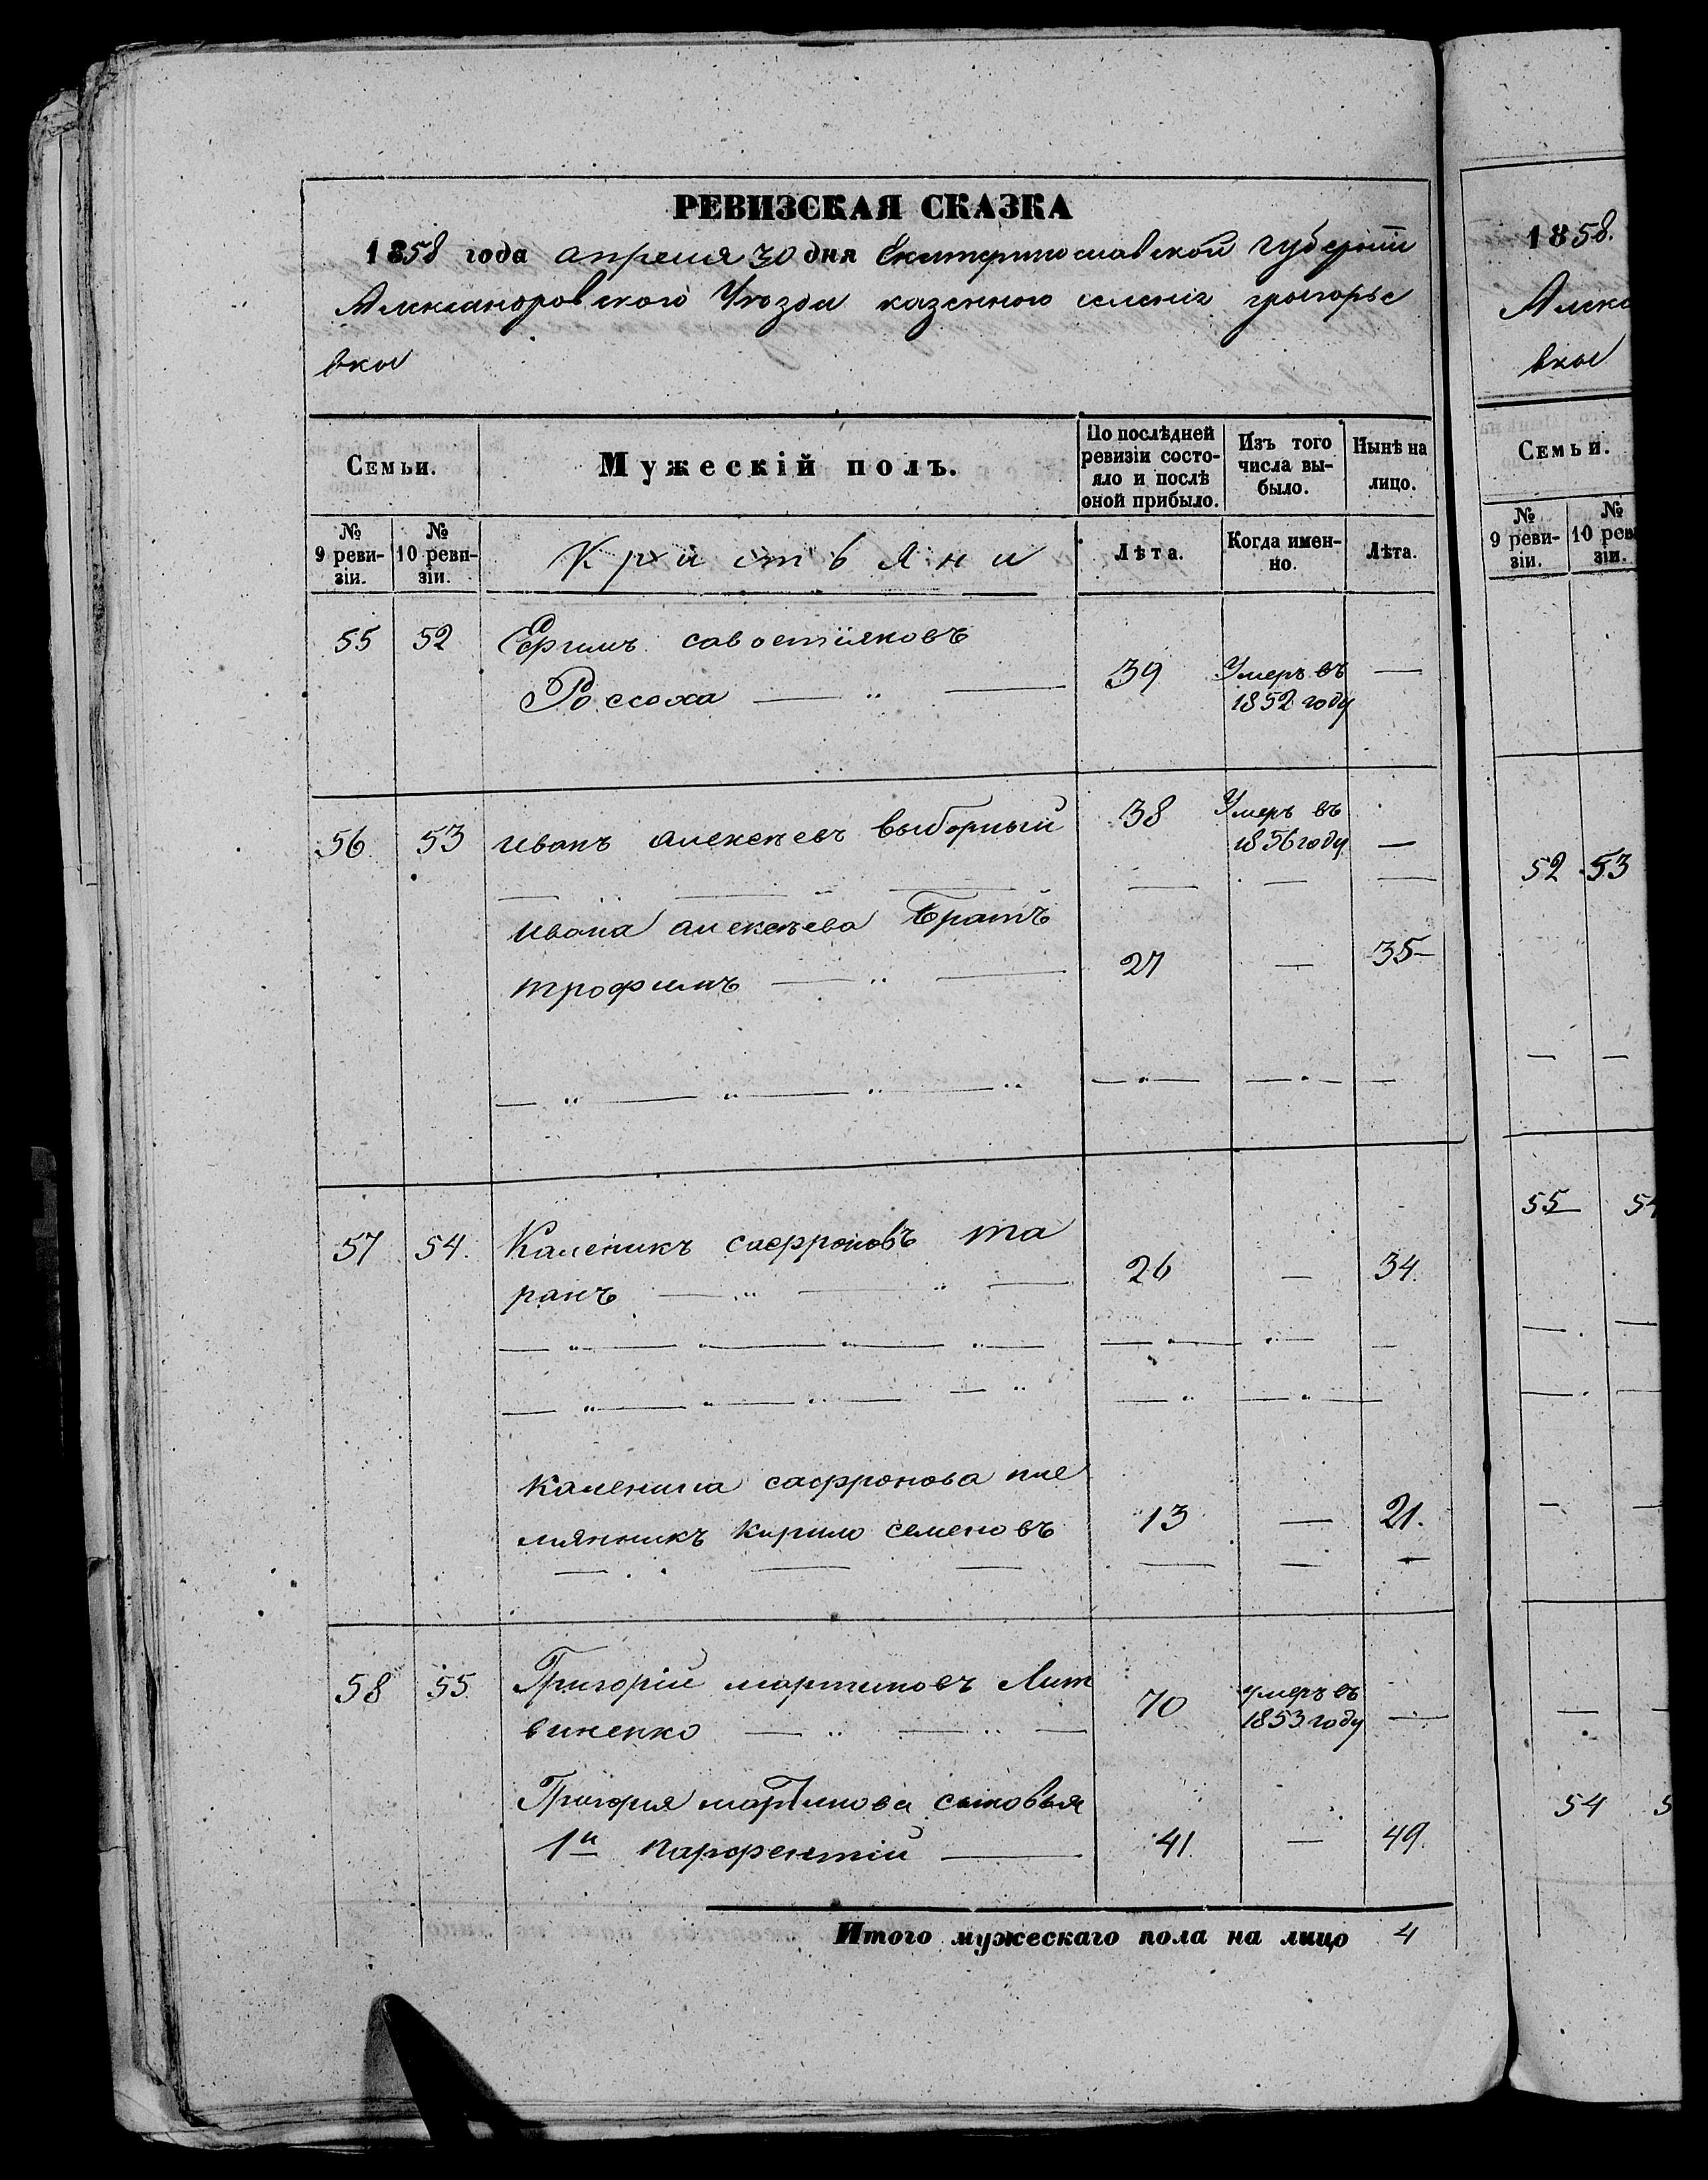 РЕВИЗСКАЯ СКАЗКА
1858 года апреля 30 дня Екатеринославской губернiи
Александровского Уѣзда казенного селенiя григорье
вки
Семьи.
Мужескiй полъ.
По послѣдней ревизiи состо-
яло и послѣ
оной прибыло.
Изъ того
числа вы-
было.
Нынѣ на
лицо.
№
9 реви-
зiи.
№
10 реви-
зiи.
Лѣта.
Когда имен-
но.
Лѣта.
55 52 Ефимъ савостiяновъ
Россоха 39 Умеръ въ
1852 году —
56 53 иванъ алексѣевъ выборный 38 Умеръ въ
1856 году —
ивана алексѣева братъ
трофимъ 27 — 35
57 54. Каленикъ сафроновъ та
ранъ 26 — 34.
каленика сафронова пле
мянникъ кирило семеновъ 13 — 21.
58 55 Григорiй мартиновъ Лит
виненко 70 умеръ въ
1853 году —
Григория мартинова сыновья
1й парфентiй 41. — 49.
Итого мужескаго пола на лицо 4
1858.
Алекс
вки
Семьи.
№
9 реви-
зiи.
№
10 реви
зiи.
52 53
55 54
54 5